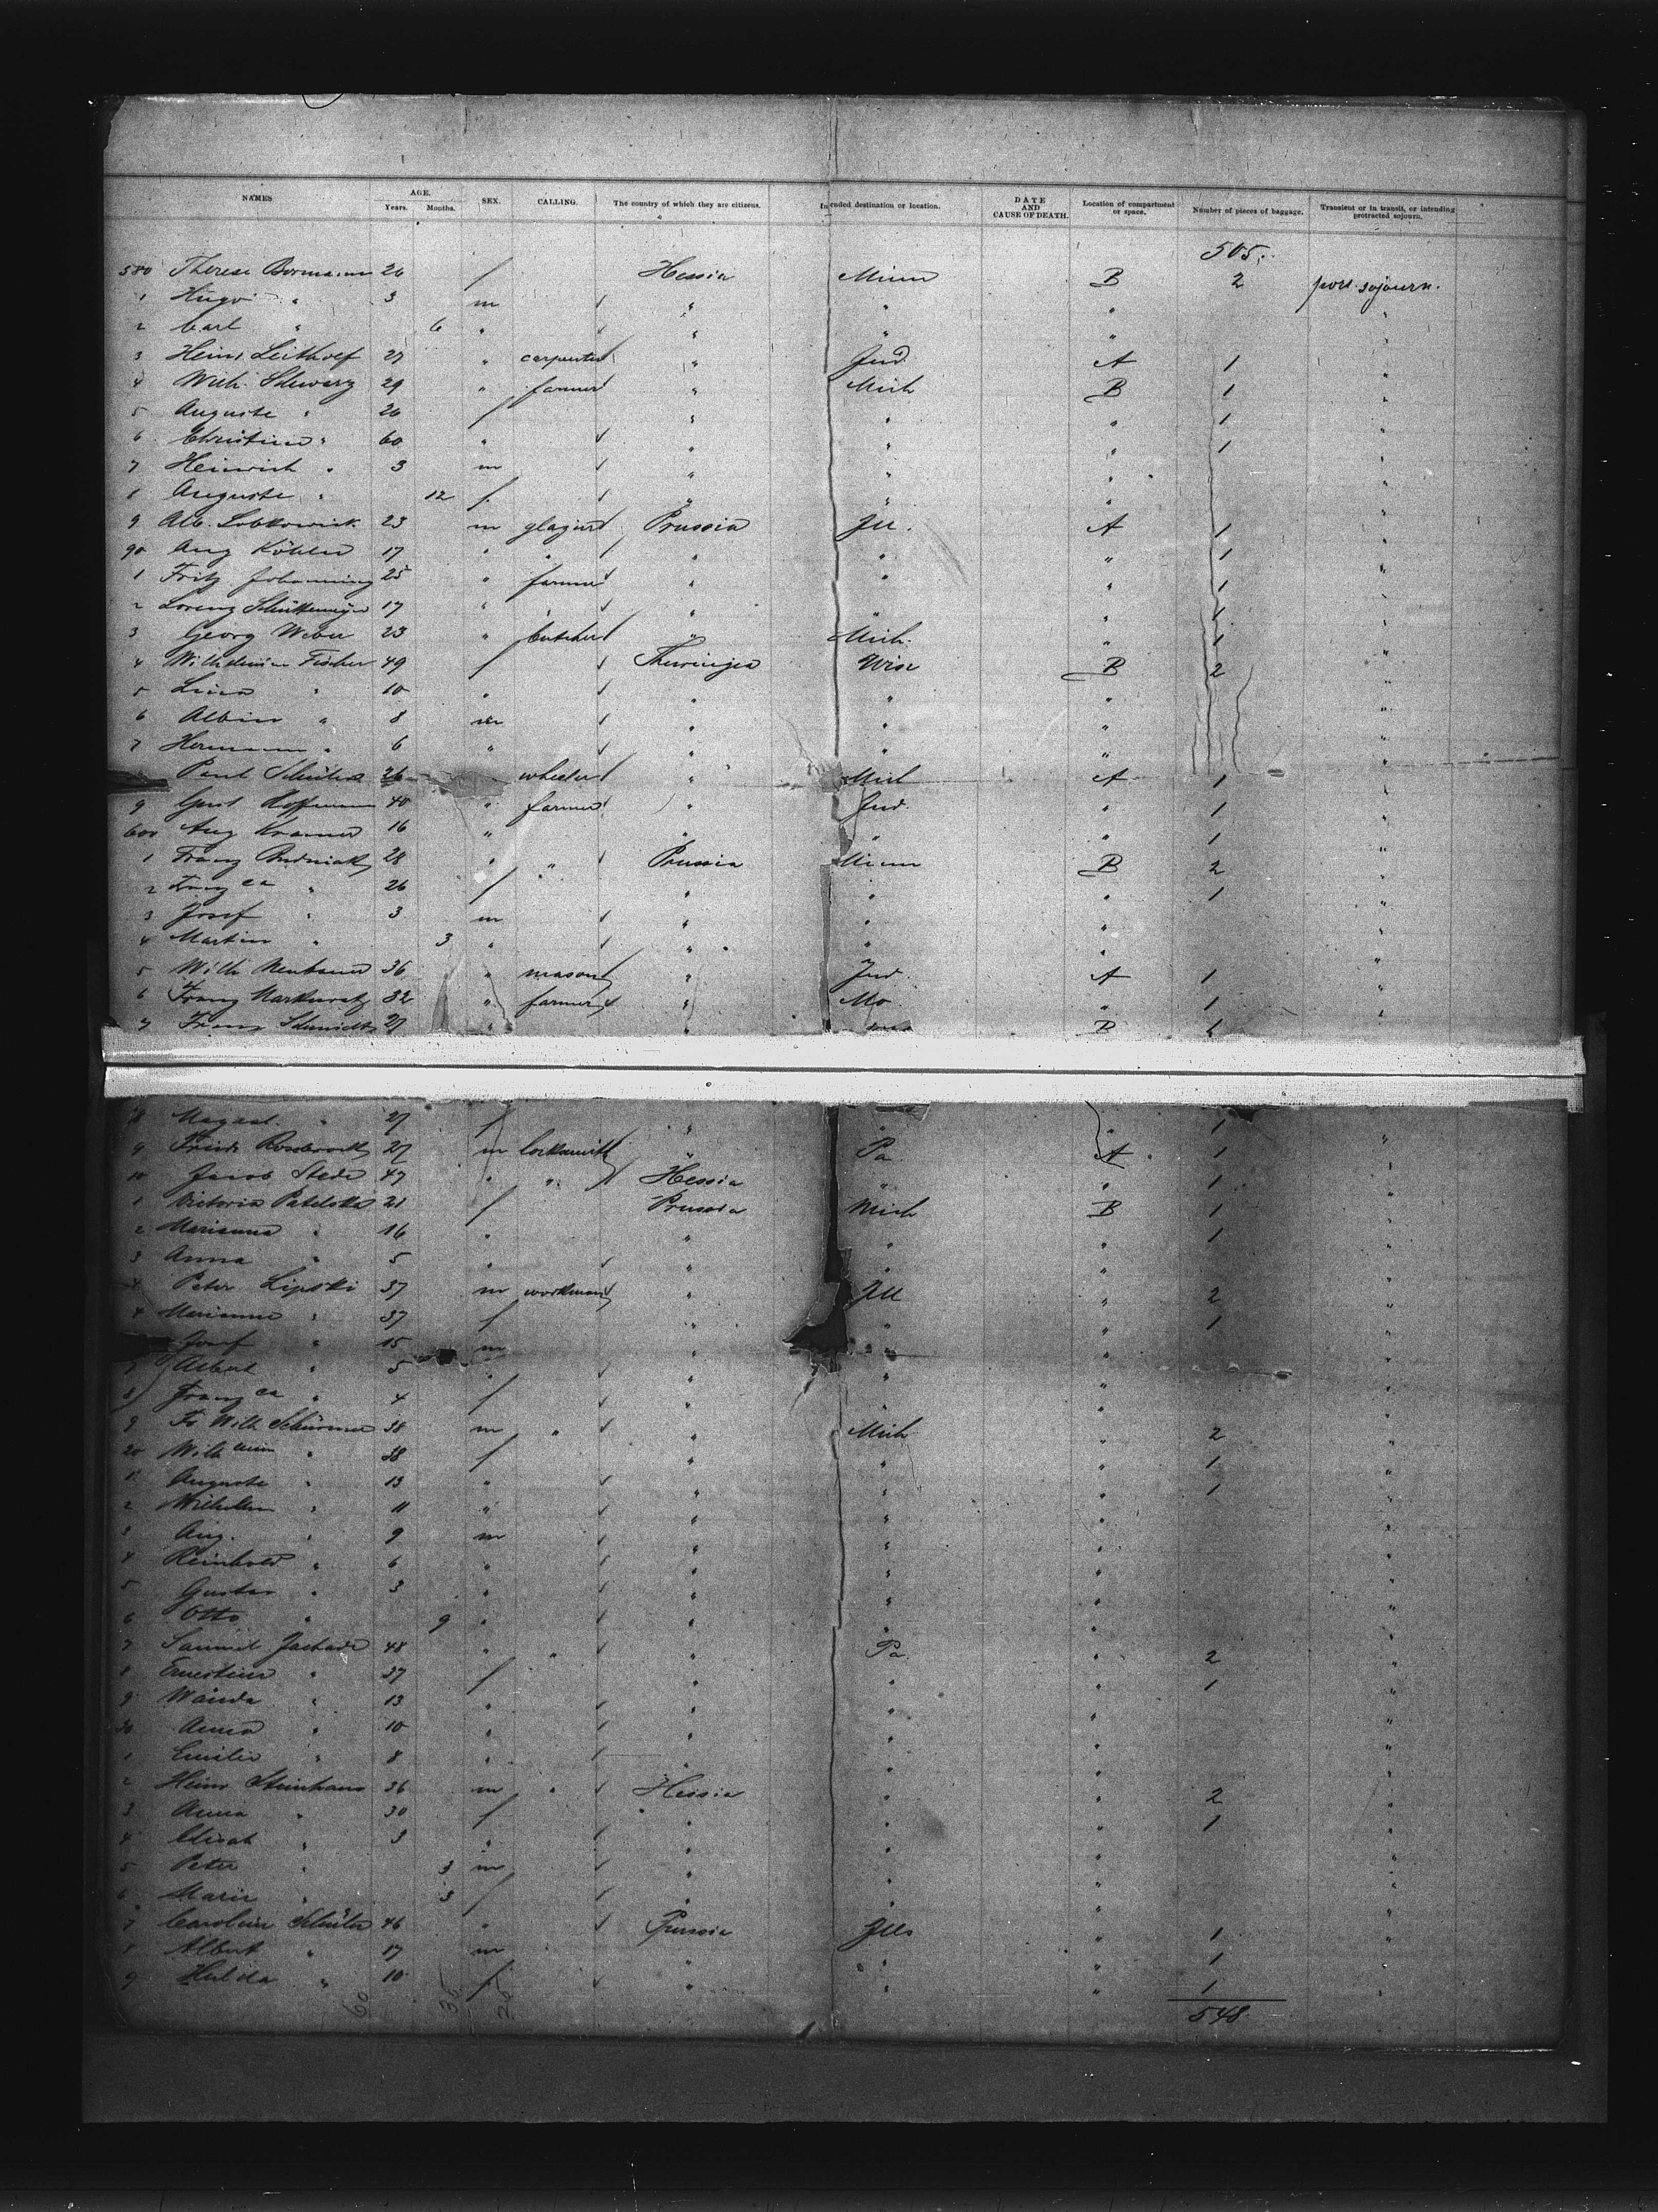 NAMES AGE. Years. Months. SEX. CALLING. The country of which they are citizens. Intended destination or location. DATE AND CAUSE OF DEATH. Location of compartment or space. Number of pieces of baggage. Transient or in transit, or intending protracted sojourn.
505.
580 Therese Bormann 26 f Hessia Minn B 2 port. sojourn.
1 Hugo " 3 m " " " "
2 Carl " 6 " " " " "
3 Heinr. Leithoff 27 " carpenter " Ind. A 1 "
4 Wilh. Schwarz 29 " farmer " Mich B 1 "
5 Auguste " 26 f " " " 1 "
6 Christine " 60 " " " " 1 "
7 Heinrich " 3 m " " " "
8 Auguste " 12 f. " " " "
9 Alb. 23 m glazier Prussia Ill. A 1 "
90 Aug Köhler 17 " " " " " 1 "
1 Fritz Johanning 25 " farmer " " " 1 "
2 Lorenz 17 " " " " " 1 "
3 Georg Weber 23 " butcher " Mich. " 1 "
4 Wilhelmine Fischer 49 f Thuringia Wisc B 2 "
5 Lina " 10 " " " " "
6 Albin " 8 m " " " "
7 Hermann " 6 " " " " "
Paul 26 wheeler " Mich A 1 "
9 Gust Hoffmann 40 " farmer " Ind. " 1 "
600 Aug Kramer 16 " " " " 1 "
1 Franz 28 " " Prussia Minn B 2 "
2 Franzca " 26 f " " " 1 "
3 Josef " 3 m " " " "
4 Martin " 3 " " " " "
5 Wilh Neubauer 36 " mason " Ind. A 1 "
6 Franz 32 " farmer " Mo " 1 "
7 Franz Schmidt 27 " " B 1
8 Magdal. " 27 f " " 1 "
9 27 m locksmith " Pa. A 1
10 Jacob Stede 47 " " Hessia " " 1 "
1 Victoria Patelska 21 f Prussia Mich B 1 "
2 Marianna " 16 " " " " 1 "
3 Anna " 5 " " " " "
4 Peter Lipski 37 m workman " Ill " 2 "
Marianna " 37 f " " " 1 "
Josef " 15 m " " " "
7 Albert " 5 " " " " "
8 Franzca " 4 f " " " "
9 Fr. Wilh. 38 m " " Mich " 2 "
20 Wilhelmine " 38 f " " " 1 "
1 Auguste " 13 " " " " 1 "
2 " 11 " " " " "
3 Aug. " 9 m " " " "
4 Reinhold " 6 " " " " "
5 Gustav " 3 " " " " "
6 Otto " 9 " " " " "
7 Samuel 48 " " " Pa. " 2 "
8 Ernestine " 37 f " " " 1 "
9 Wanda " 13 " " " " "
30 Anna " 10 " " " " "
1 Emilie " 8 " " " " "
2 Heinr Steinhaus 36 m " Hessia " " 2 "
3 Anna " 30 f " " " 1 "
4 Elisab " 3 " " " " "
5 Peter " 3 m " " " "
6 Marie " 3 f " " " "
7 Caroline Schüler 46 " Prussia Ills " 1 "
8 Albert " 17 m " " " 1
9 Hulda " 10 f. " " " 1 "
548